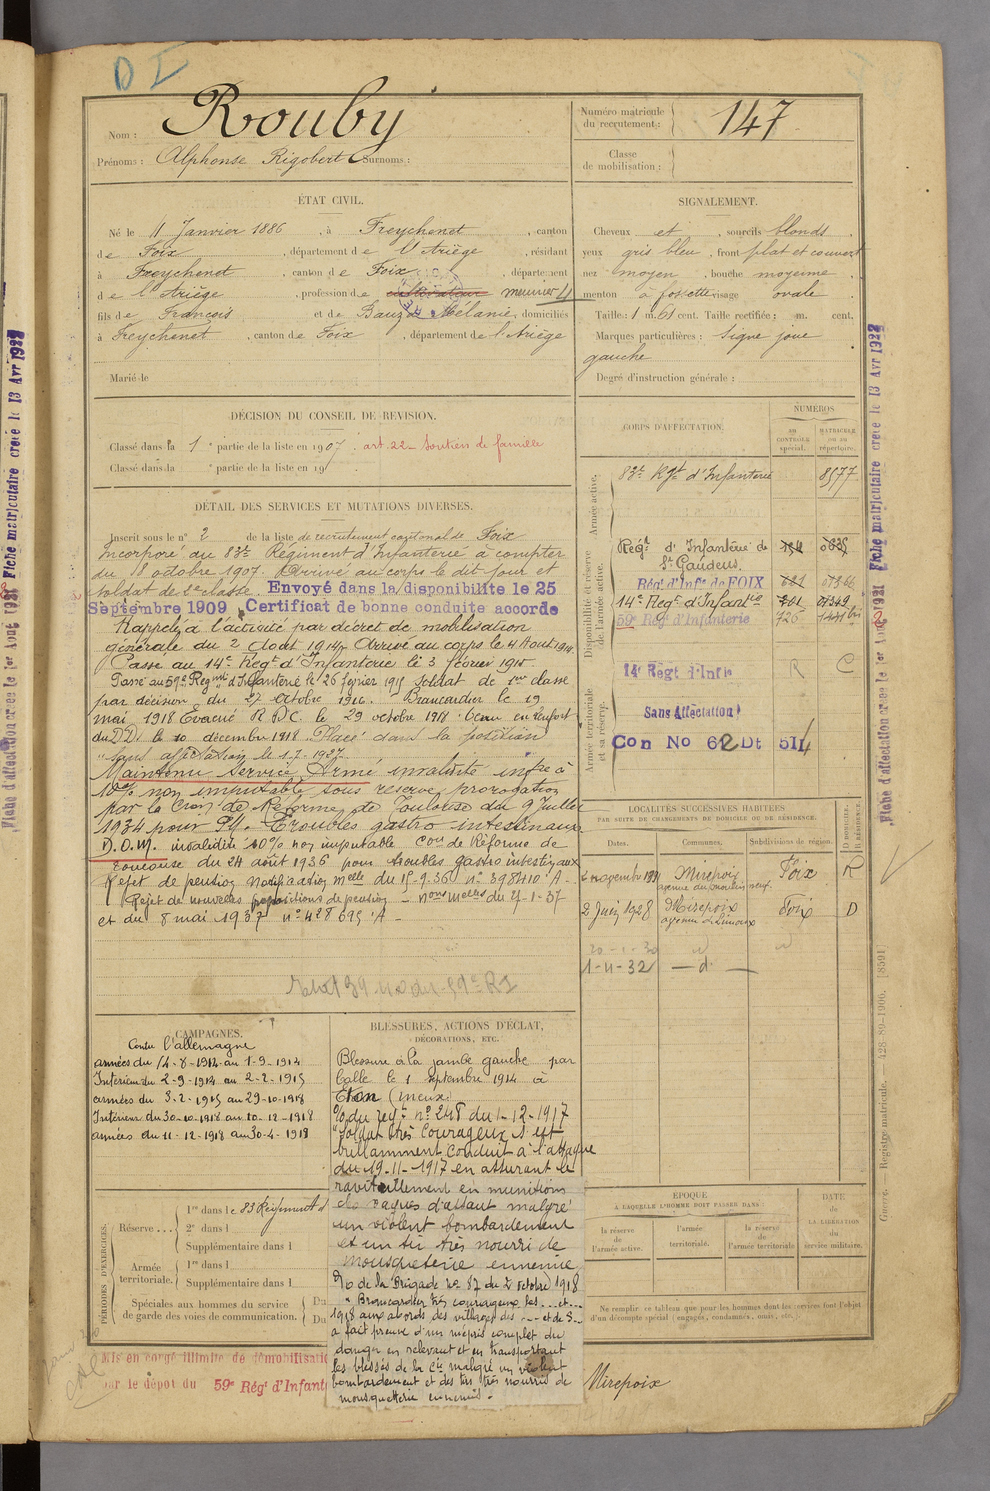 D I
Nom : Rouby
Prénoms : Alphonse Rigobert Surnoms :
Numéro matricule du recrutement : 147
Classe de mobilisation :
ÉTAT CIVIL.
Né le 11 Janvier 1886, à Freychenet, canton
de Foix, département de l'Ariège, résidant
à Freychenet, canton de Foix, département
de l'Ariège, profession de cultivateur meunier
fils de François et de Bauzo Mélanie, domiciliés
à Freychenet, canton de Foix, département de l'Ariège
Marié le
SIGNALEMENT.
Cheveux et, sourcils blonds,
yeux gris bleu, front plat et couvert
nez moyen, bouche moyenne,
menton à fossette visage ovale
Taille : 1 m. 61 cent. Taille rectifiée : m. cent.
Marques particulières : Signe joue
gauche
Degré d'instruction générale :
DÉCISION DU CONSEIL DE REVISION.
Classé dans la 1e partie de la liste en 1907. art. 22 - soutien de famille
Classé dans la e partie de la liste en 19
DÉTAIL DES SERVICES ET MUTATIONS DIVERSES.
Inscrit sous le n° 2 de la liste de recrutement cantonal de Foix
Incorporé au 83e Régiment d'Infanterie à compter
du 18 octobre 1907. Arrivé au corps le dit jour et
soldat de 2e classe. Envoyé dans la disponibilité le 25
Septembre 1909 Certificat de bonne conduite accordé
Rappelé à l'activité par décret de mobilisation
générale du 2 Août 1914. Arrivé au corps le 4 Août 1914.
Passé au 14e Regt d'Infanterie le 3 février 1915
Passé au 59e Regiment d'Infanterie le 26 février 1915 Soldat de 1ere classe
par décision du 27 octobre 1916. Brancardier le 19
mai 1918 Evacué R.D.C. le 29 octobre 1918. Venu en renfort
du D.D. le 10 décembre 1918. Placé dans la position
"sans affectation le 1-7-1927"
Maintenu Service Armé invalidité infre à
10% non imputable sous réserve prorogation
par la Cion de Réforme de Toulouse du 9 Juillet
1934 pour Troubles gastro intestinaux
D.O.M. invalidité 10% non imputable Con de Réforme de
Toulouse du 24 août 1936 pour troubles gastro intestinaux
Rejet de pension Notification Melle du 15-9-36 n° 398410 A -
Rejet de nouvelles propositions de pension - nons Melles du 27-1-37
et du 8 mai 1937 n° 428695 A -
CORPS D'AFFECTATION.
NUMÉROS
AU CONTRÔLE spécial.
MATRICULE OU AU répertoire.
Armée active.
83e Rgt d'Infanterie 8577
Disponibilité et réserve de l'armée active.
Régt d'Infanterie de
St Gaudens.
Régt d'Infie de FOIX
14e Regt d'Infantie
59e Régt d'Infanterie 726
Armée territoriale et sa réserve.
14e Régt d'Infie R C
Sans Affectation
Con No 62 Dt 511
LOCALITÉS SUCCESSIVES HABITÉES
PAR SUITE DE CHANGEMENTS DE DOMICILE OU DE RÉSIDENCE.
Dates. Communes. Subdivisions de région. D DOMICILE. R RÉSIDENCE.
Mirepoix Foix R
2 Juin 1928 Mirepoix Foix D
20-1-30 d° d°
1-11-32 - d° -
CAMPAGNES.
Contre l'allemagne
armées du 14-8-1914 au 1-9-1914
Intérieur du 2-9-1914 au 2-2-1915
armées du 3-2-1915 au 29-10-1918
Intérieur du 30-10-1918 au 10-12-1918
armées du 11-12-1918 au 30-4-1919
BLESSURES, ACTIONS D'ÉCLAT,
DÉCORATIONS, ETC.
Blessure à la jambe gauche par
balle le 1 septembre 1914 à
Eton (Meuse)
% du regt n° 248 du 1-12-1917
"Soldat très courageux s'est
brillamment conduit à l'attaque
du 19-11-1917 en assurant le
ravitaillement en munitions
des vagues d'assaut malgré
un violent bombardement
et un tir très nourri de
mousqueterie ennemie
% de la Brigade n° 87 du 2 octobre 1918
"Brancardier très courageux les ... et ...
1918 aux abords des villages des --- et de S...
a fait preuve d'un mépris complet du
danger en relevant et en transportant
les blessés de la Cie malgré un violent
bombardement et des tirs très nourris de
mousqueterie ennemis.
PÉRIODES D'EXERCICES.
Réserve... 1re dans le 83 Régiment d
2e dans l
Supplémentaire dans l
Armée territoriale. 1re dans l
Supplémentaire dans l
Spéciales aux hommes du service
de garde des voies de communication. Du
Du
ÉPOQUE
À LAQUELLE L'HOMME DOIT PASSER DANS :
la réserve de l'armée active.
l'armée territoriale.
la réserve de l'armée territoriale
DATE
de LA LIBÉRATION du service militaire.
Ne remplir ce tableau que pour les hommes dont les services font l'objet
d'un décompte spécial (engagés, condamnés, omis, etc.)
Mis en congé illimité de démobilisati
par le dépôt du 59e Régt d'Infant
Mirepoix
Fiche matriculaire créée le 13 Avr 1922
Fiche d'affectation créée le 1er Août 1921
Fiche matriculaire créée le 13 Avr 1922
Fiche d'affectation créée le 1er Août 1921
Guerre. — Registre matricule. — 428-89-1906. [8591]